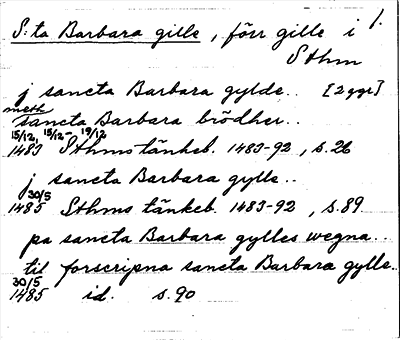 S:ta Barbara gille, förr gille i 1.
Sthm
j sancta Barbara gylde.. [2 ggr]
meth sancta Barbara brödher..
15/12, 15/12-, 19/12
1483 Sthms tänkeb. 1483-92, s. 26
j sancta Barbara gylle..
30/5
1485 Sthms tänkeb. 1483-92, s. 89
pa sancta Barbara gylles wegna...
til forscripna sancta Barbara gylle..
30/5
1485 id. s. 90